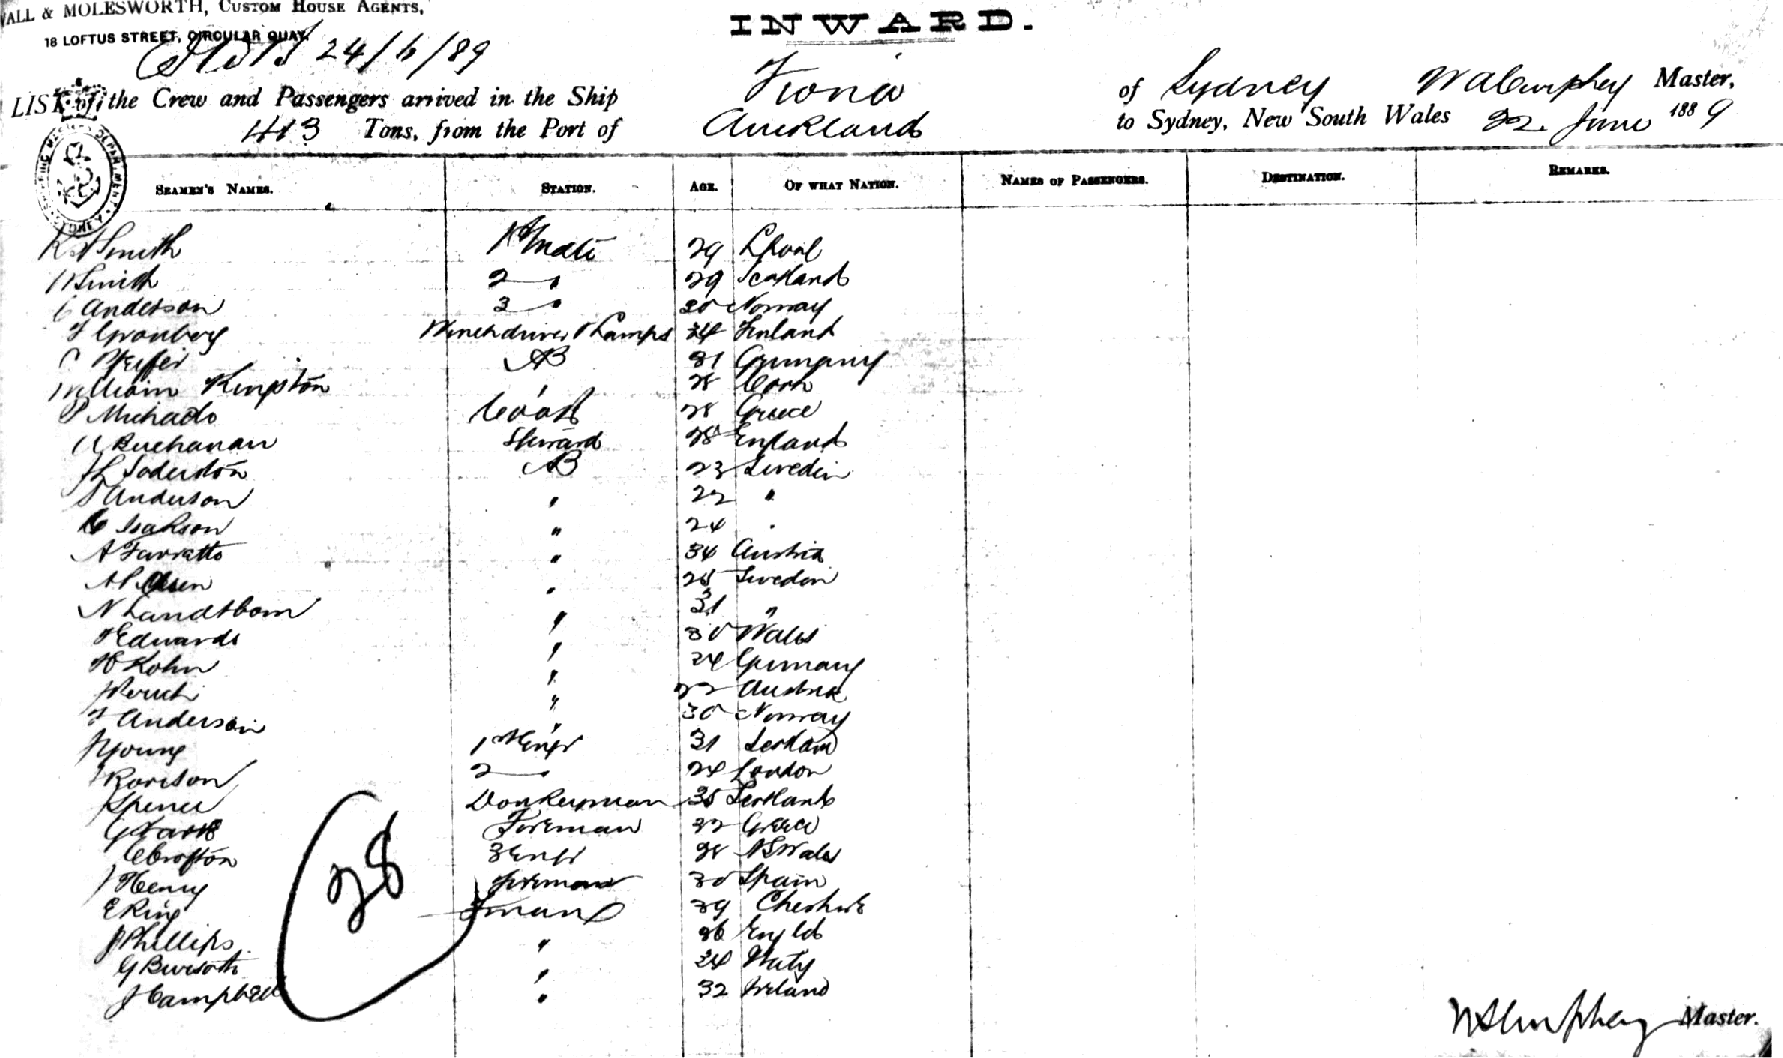 WALL & MOLESWORTH, CUSTOM HOUSE AGENTS,
18 LOFTUS STREET, CIRCULAR QUAY.
INWARD.
24/6/89
LIST of the Crew and Passengers arrived in the Ship Fiona of Sydney Master,
413 Tons, from the Port of Auckland to Sydney, New South Wales 22 June 1889
SEAMEN'S NAMES. STATION. AGE. OF WHAT NATION. NAMES OF PASSENGERS. DESTINATION. REMARKS.
Smith 1st Mate 29 L'pool
Smith 2 " 29 Scotland
C Anderson 3 " Norway
Gronberg Winchdriver & Lamps 24 Finland
Pfeiffer AB 31 Germany
William Kingston " 28 Cork
Michado Cook 28 Greece
Buchanan Steward 28 England
Soderston AB 23 Sweden
Anderson " 22 "
Isakson " 24 "
A Farratto " 34 Austria
A P Olsen " 28 Sweden
N Landtbom " 31 "
Edwards " 30 Wales
H Kohn " 24 Germany
" 22 Austria
Anderson " 30 Norway
J Young 1st Engr 31 Scotland
Rorison 2 " 24 London
Spence Donkeyman 35 Scotland
G Fireman 32 Greece
C Crofton 3 Engr 28 N S Wales
J Henry Fireman 30 Spain
E King Fireman 39 Cheshire
J Phillips " 26 Engld
G " 24 Italy
J Campbell " 32 Ireland
28
Master.